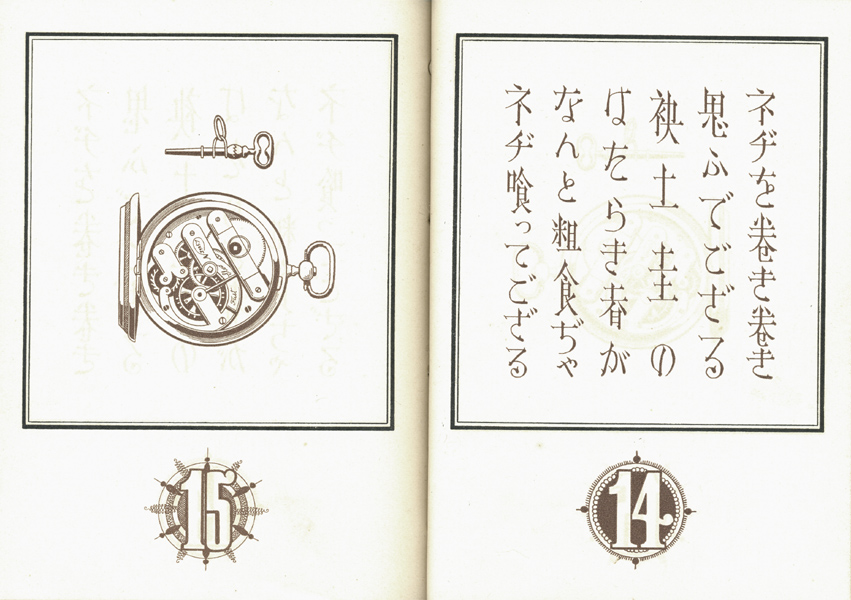 ネヂを巻き巻き
思ふでござる
袂土圭の
はたらき者が
なんと粗食ぢゃ
ネヂ喰ってござる
14
15